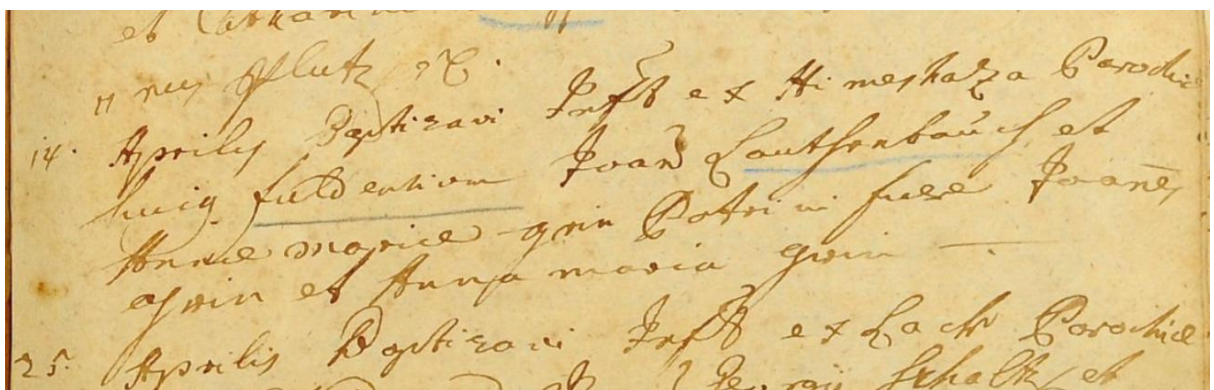 et Catharina
nus Plutz etc.
14. Aprilis Baptizavi Inft ex Himeshaza Parochiæ
huig fuldentium Joan Lauthenbauch et
Annæ Mariæ grin Patrini fuere Joanes
grin et Anna maria grin —
25. Aprilis Baptizavi Inft ex Lack Parochiæ
Georgy Scholtz et